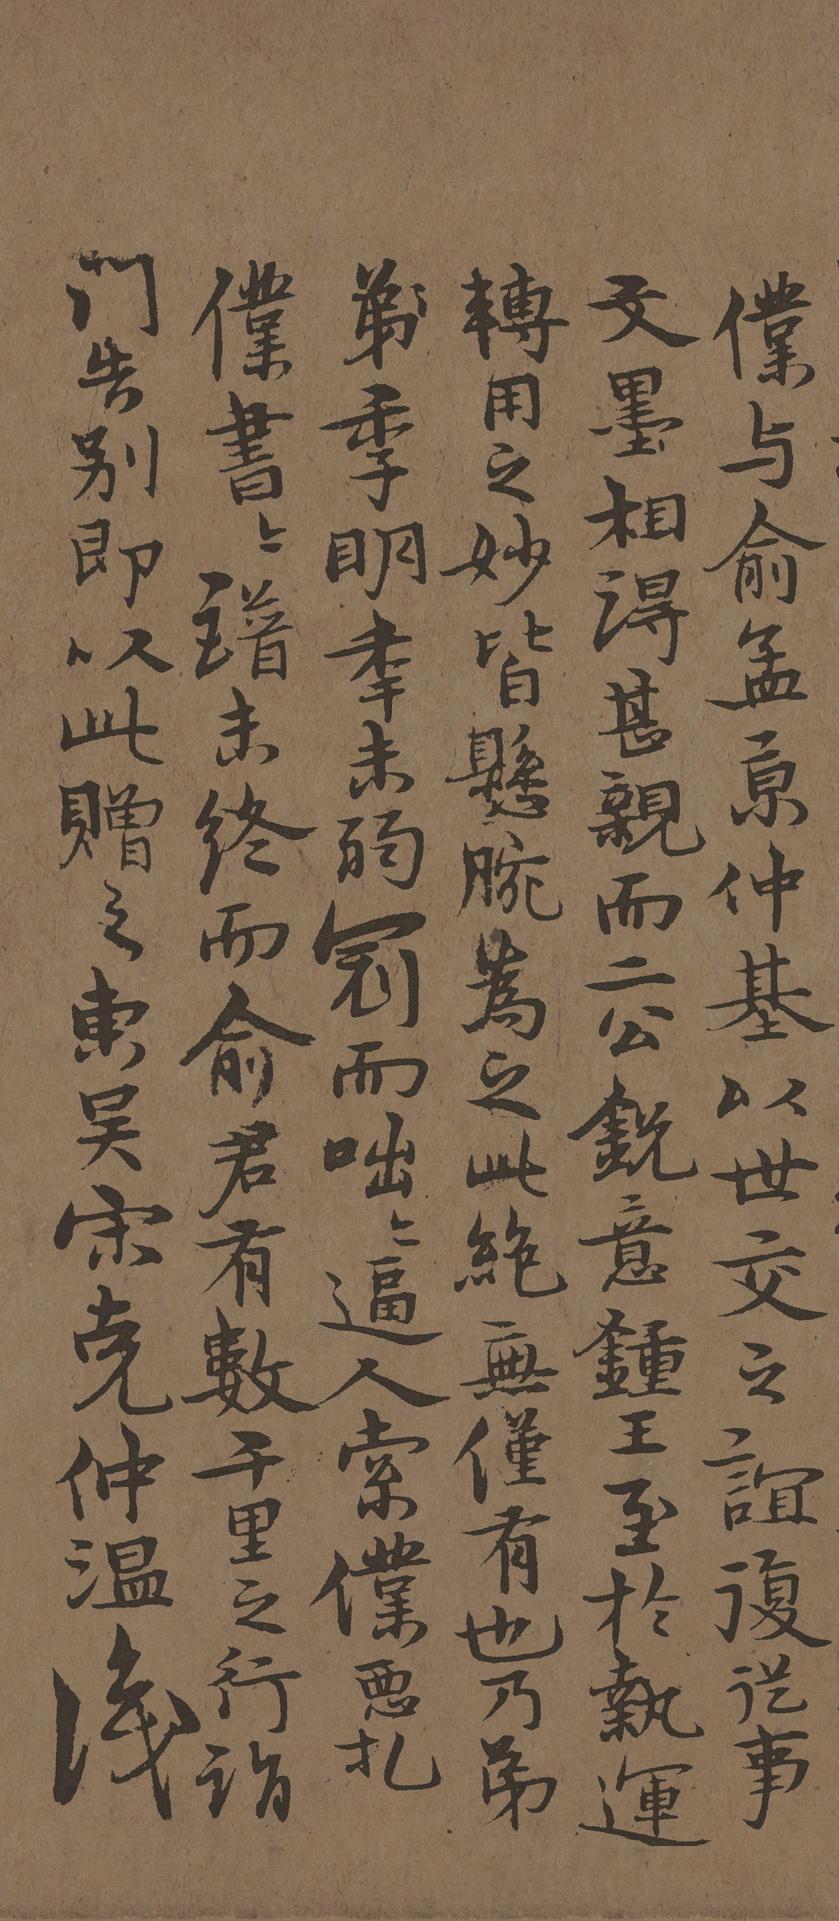 僕与俞孟京仲基以世交之誼復從事
文墨相得甚親而二公銳意鍾王至於執運
轉用之妙皆懸腕為之此絶無僅有也乃弟
弟季明年未弱冠而咄〻逼人索僕惡札
僕書〻譜未終而俞君有數千里之行詣
门告别即以此贈之東吴宋克仲温識